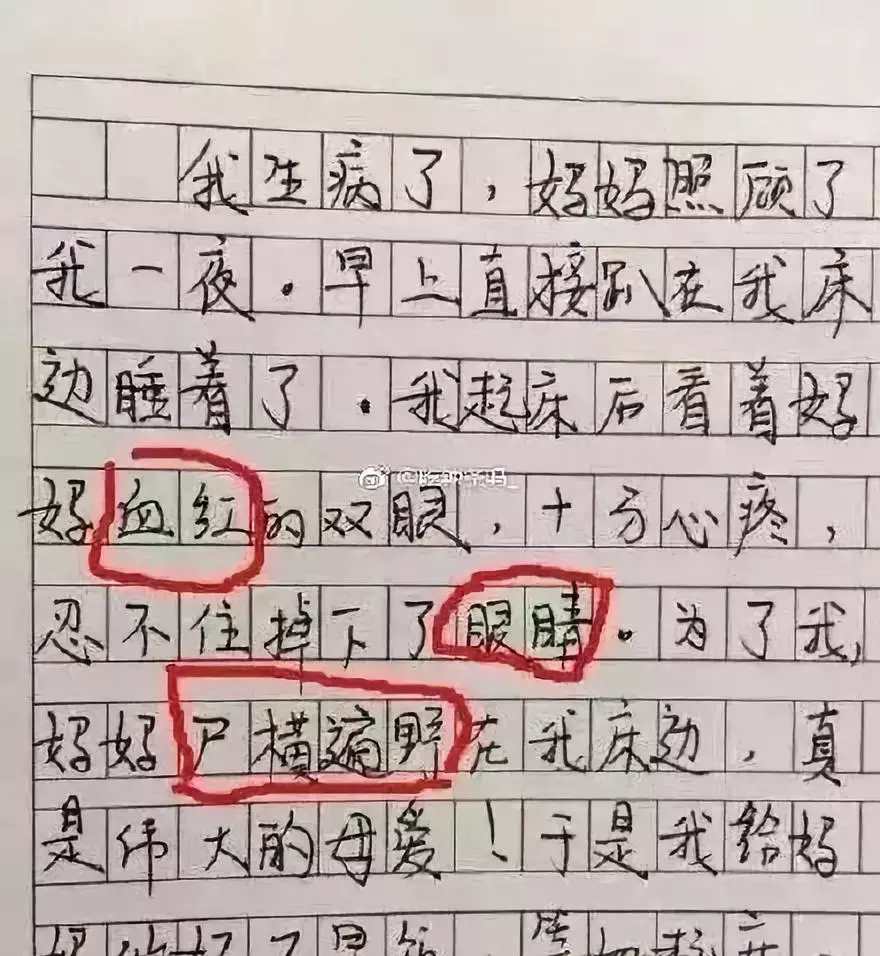 我生病了，妈妈照顾了
我一夜.早上直接趴在我床
边睡着了.我起床后看着妈
妈血红的双眼，十分心疼，
忍不住掉下了眼睛.为了我，
妈妈尸横遍野在我床边，真
是伟大的母爱！于是我给妈
妈做好了早饭